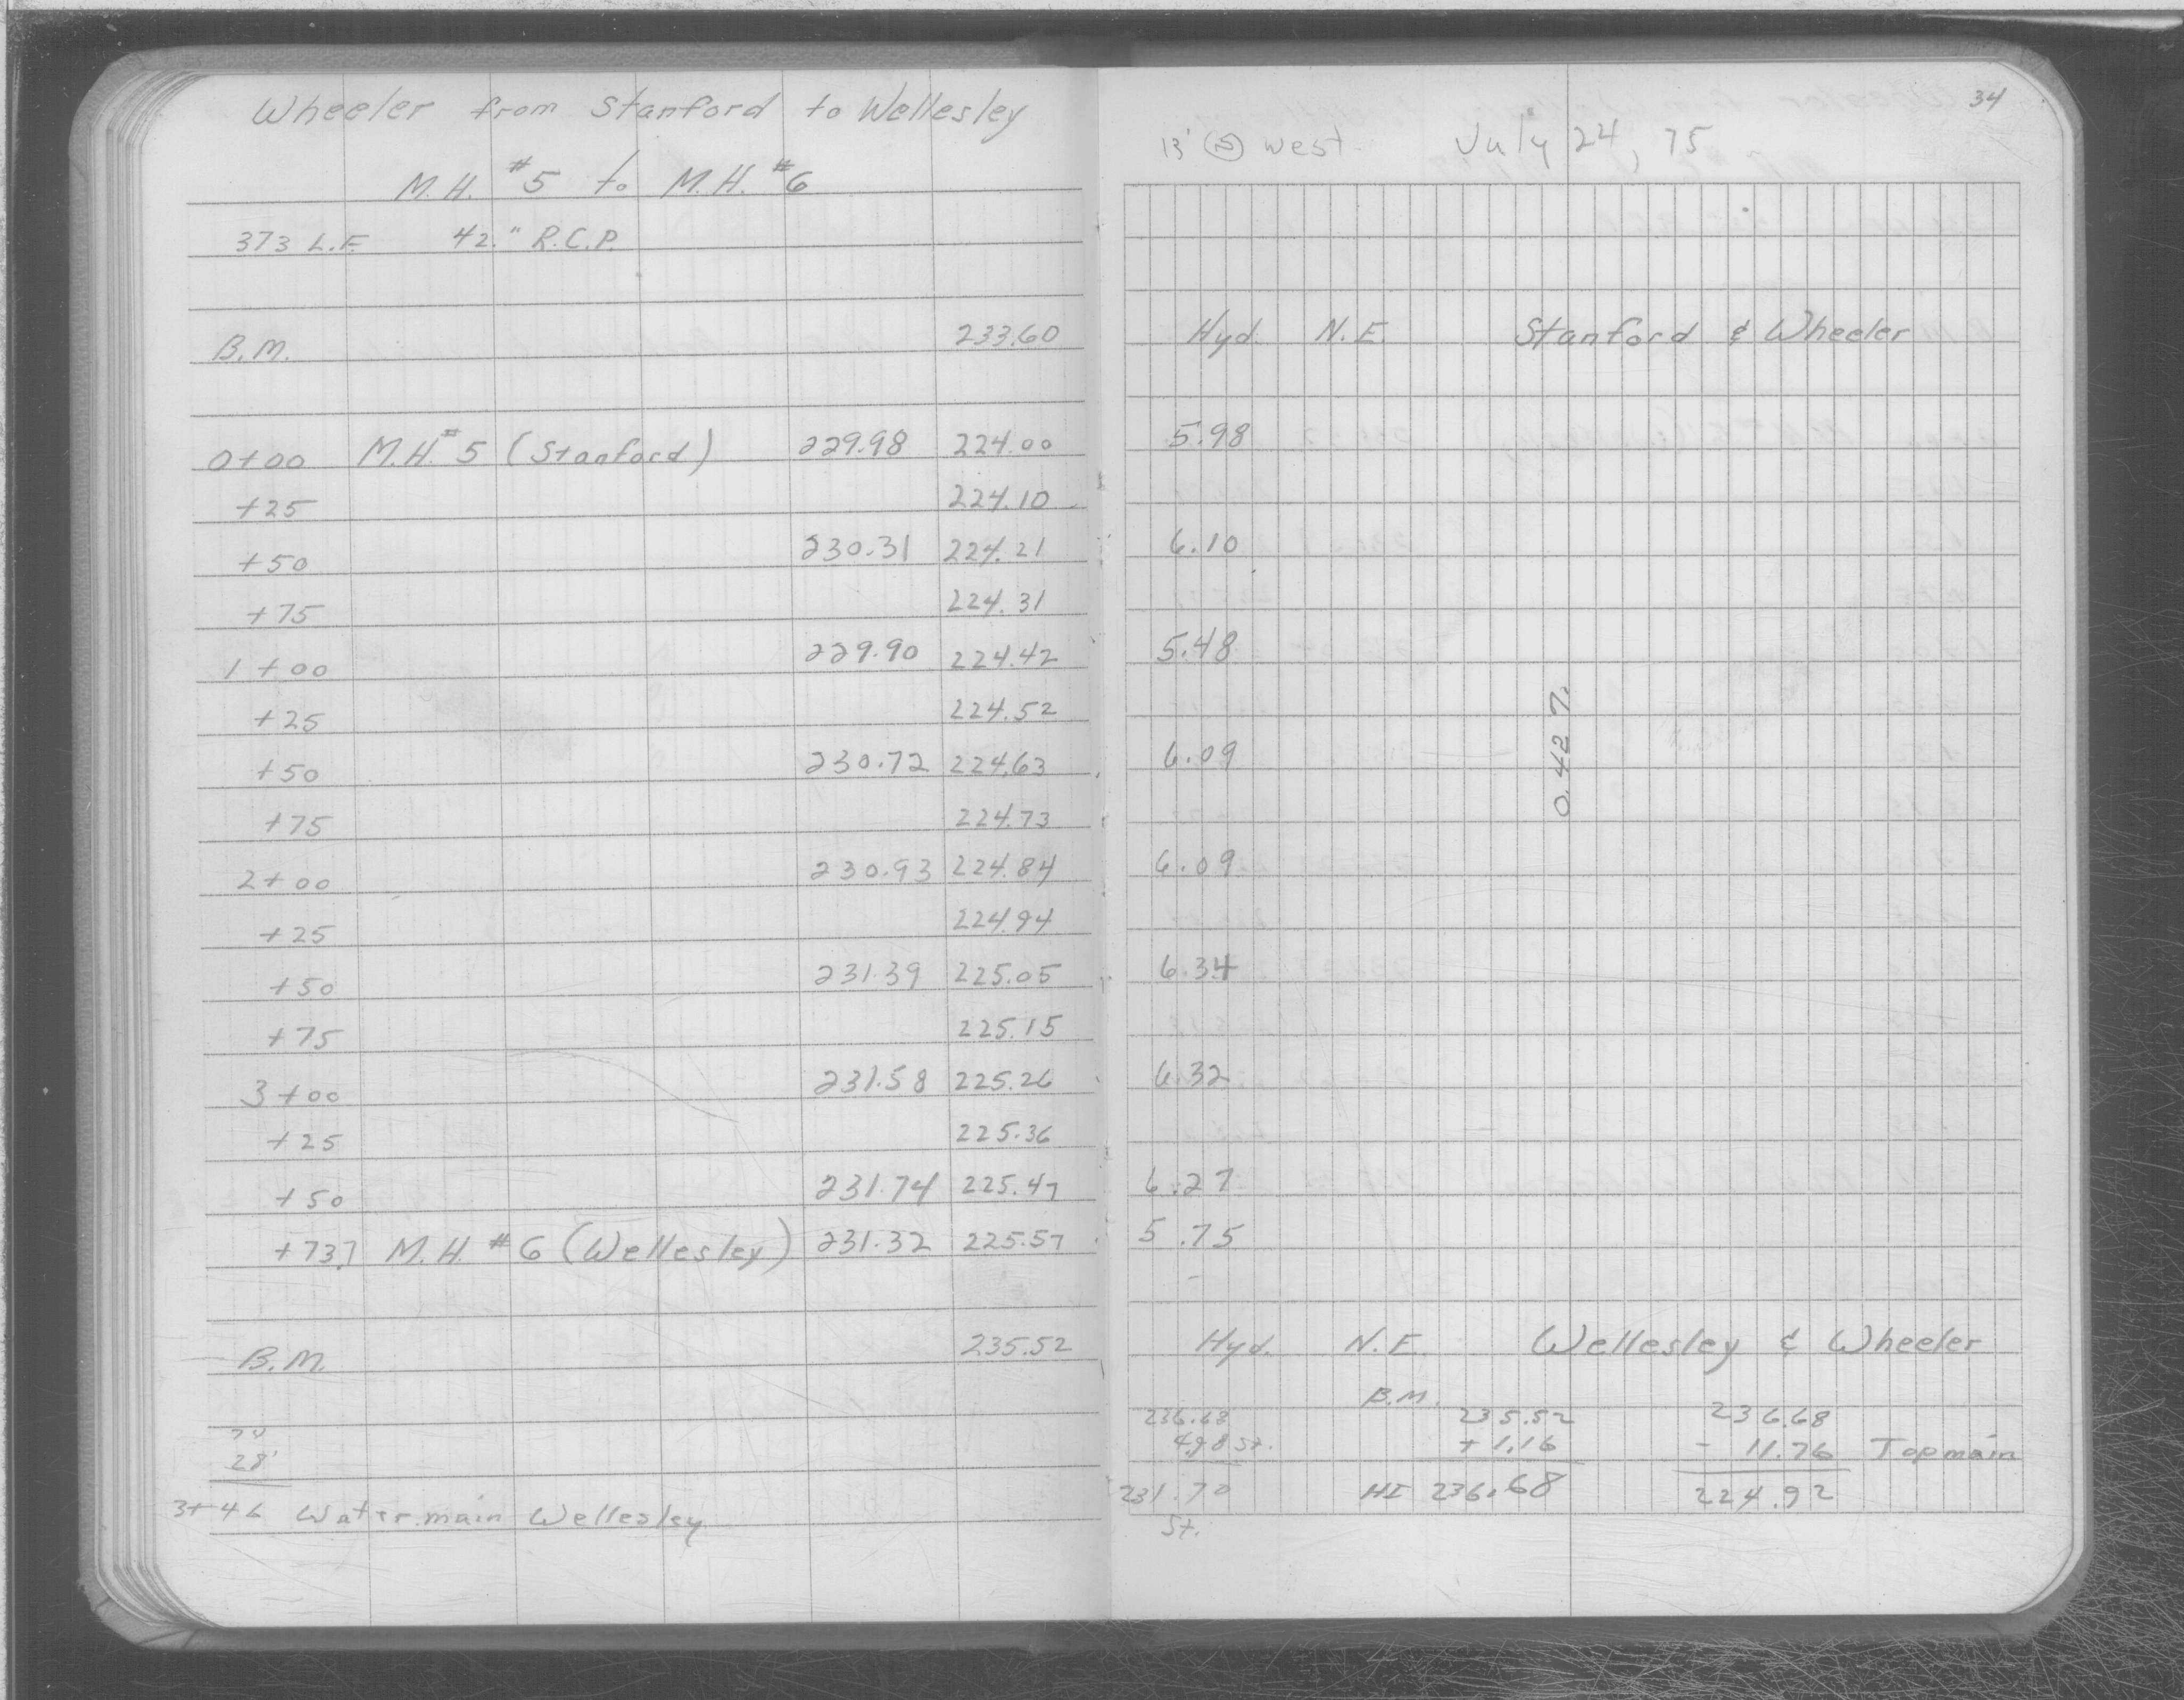 Wheeler from Stanford to Wellesley
M.H. #5 to M.H. #6
373 L.F. 42" R.C.P.
B.M. 233.60
0+00 M.H.#5 (Stanford) 229.98 224.00
+25 224.10
+50 230.31 224.21
+75 224.31
1+00 229.90 224.42
+25 224.52
+50 230.72 224.63
+75 224.73
2+00 230.93 224.84
+25 224.94
+50 231.39 225.05
+75 225.15
3+00 231.58 225.26
+25 225.36
+50 231.74 225.47
+73.7 M.H. #6 (Wellesley) 231.32 225.57
B.M. 235.52
28'
3+46 Watermain Wellesley
34
13' west July 24, 75
Hyd. N.E. Stanford & Wheeler
5.98
6.10
5.48
0.42%
6.09
6.09
6.34
6.32
6.27
5.75
Hyd. N.E. Wellesley & Wheeler
B.M.
236.68 235.52 236.68
4.98 St. +1.16 - 11.76 Top main
231.70 HI 236.68 224.92
St.